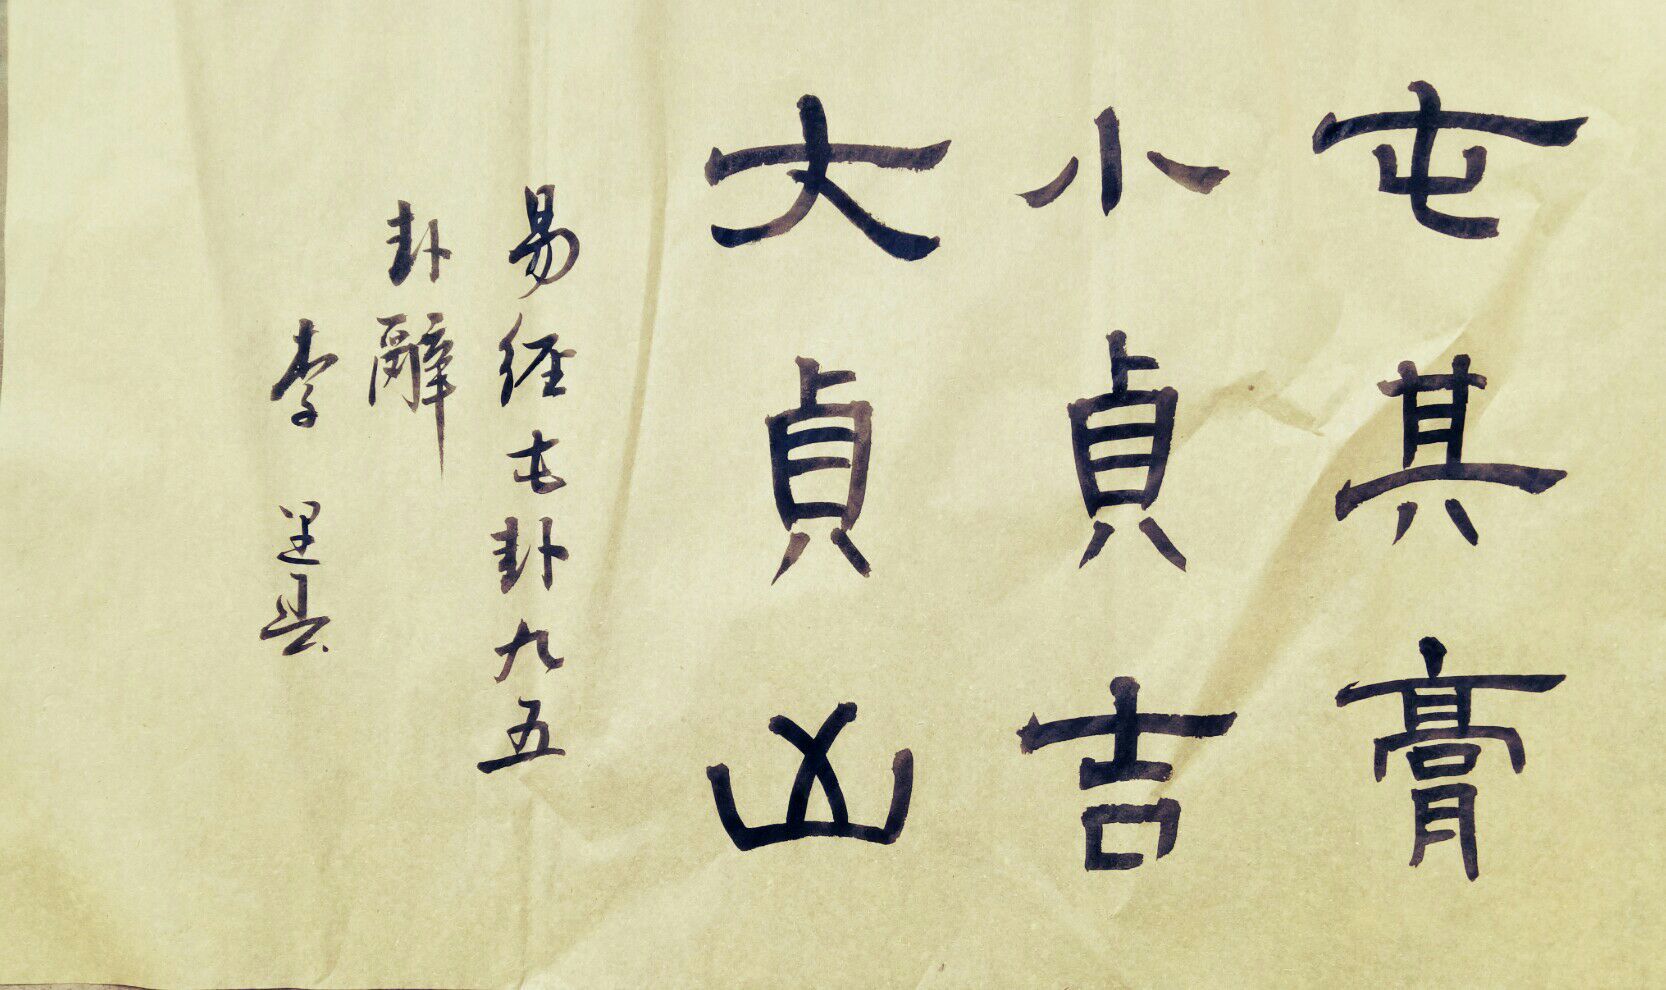 屯其膏
小貞吉
大貞凶
易經屯卦九五
卦辭
李